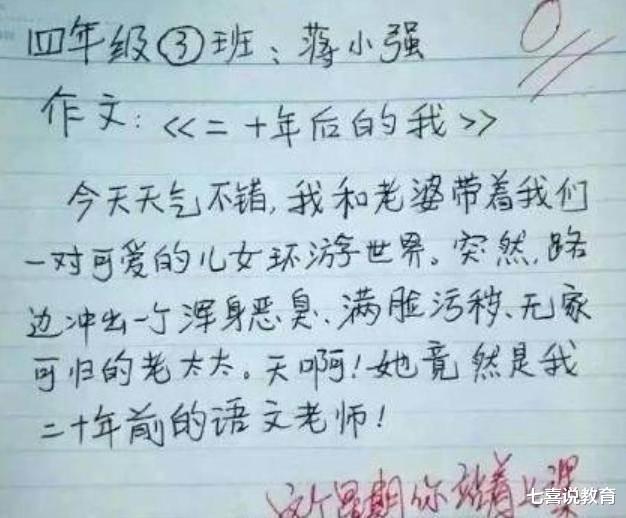 四年级③班:蒋小强
0
作文:《二十年后的我》
今天天气不错,我和老婆带着我们
一对可爱的儿女环游世界。突然,路
边冲出一个浑身恶臭、满脸污秽、无家
可归的老太太。天啊!她竟然是我
二十年前的语文老师!
这个星期你站着上课
七喜说教育